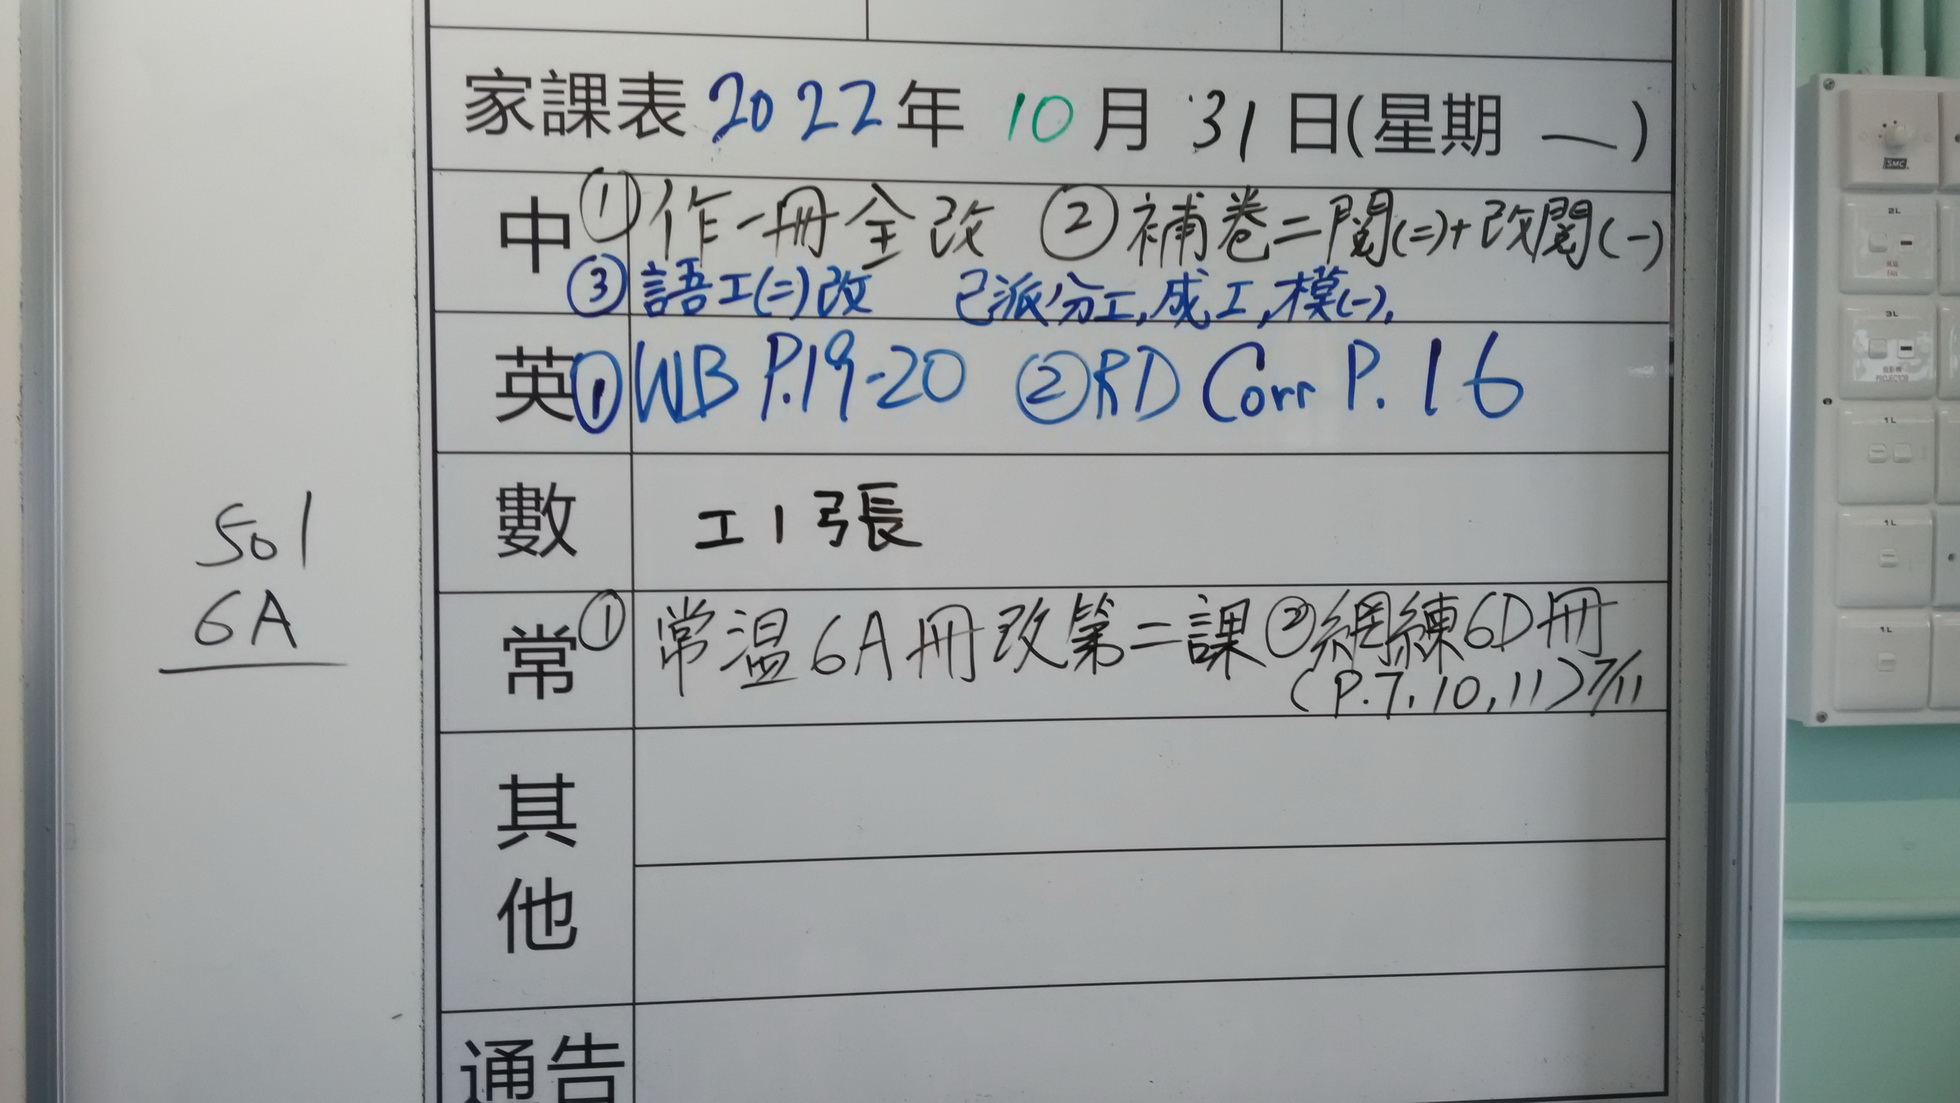 家課表 2022年 10月 31日(星期 一)
中 ①作一冊全改 ②補卷二閱(二)+改閱(一)
③語工(二)改 已派分工,成工,模(一),
英 ①WB P.19-20 ②RD Corr P.16
數 工1張
501
6A
常 ①常溫6A冊改第二課②網練6D冊
(P.7,10,11)7/11
其他
通告
SMC
2L
3L
1L
1L
1L